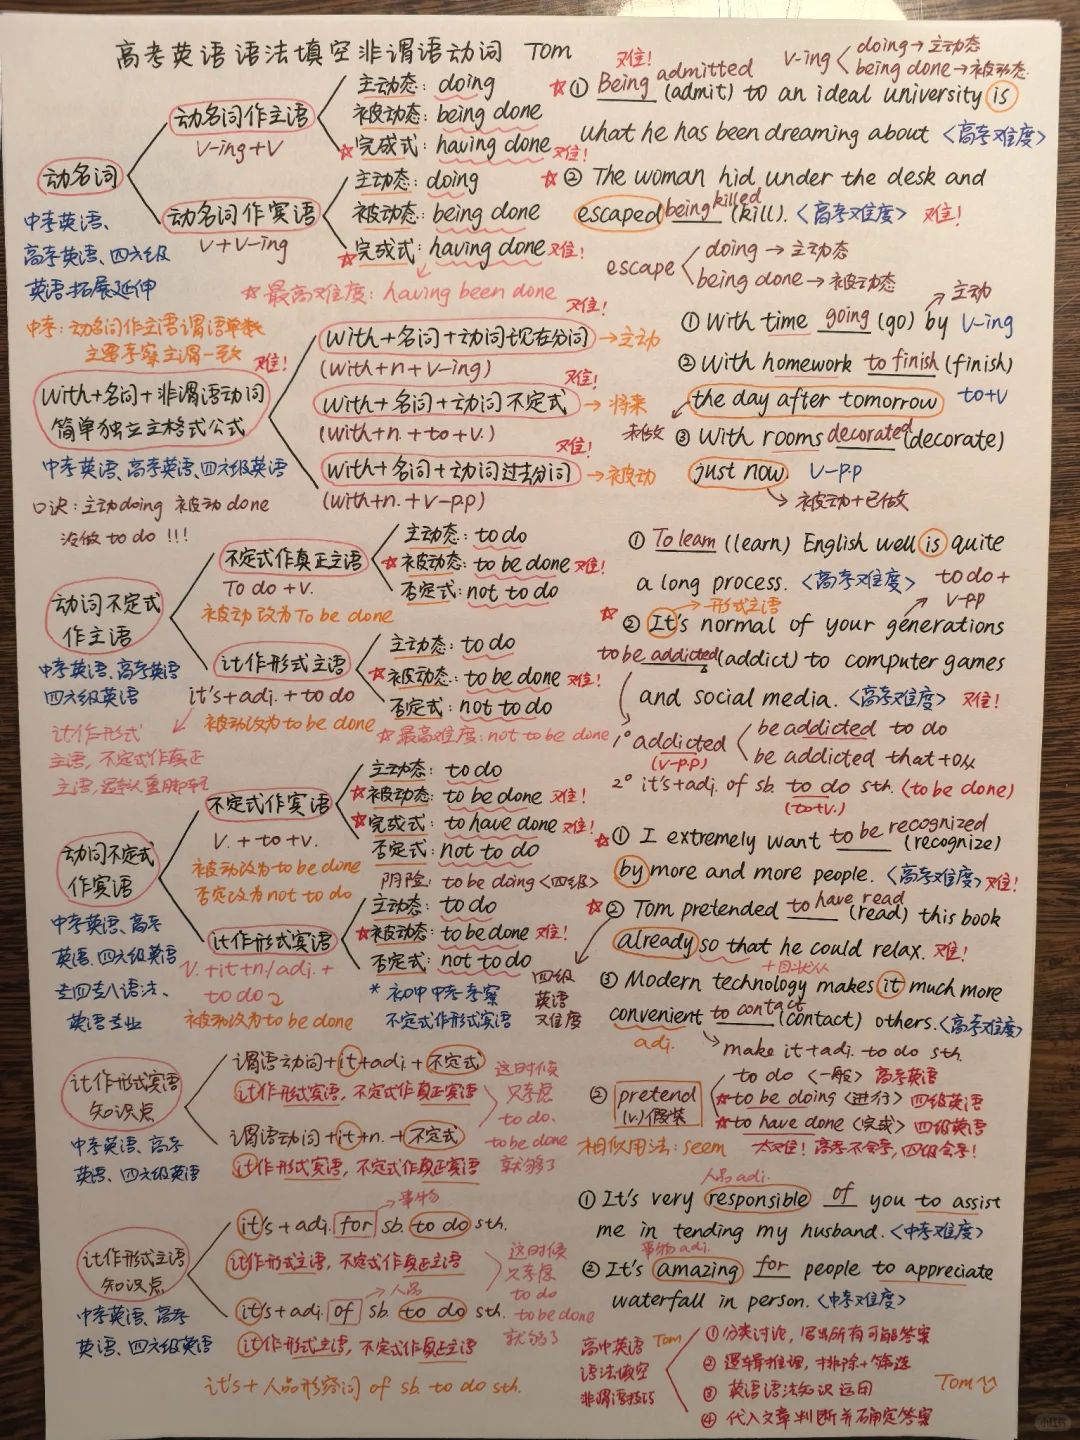 高考英语语法填空非谓语动词 Tom
动名词
中考英语、
高考英语、四六级
英语拓展延伸
动名词作主语
v-ing+v
主动态: doing
被动态: being done
☆完成式: having done 难!
动名词作宾语
v+v-ing
主动态: doing
被动态: being done
☆完成式: having done 难!
☆最高难度: having been done
难! v-ing doing→主动态
being done→被动态
☆① Being admitted (admit) to an ideal university is
what he has been dreaming about <高考难度>
☆② The woman hid under the desk and
escaped being killed (kill). <高考难度> 难!
escape doing → 主动态
being done → 被动态
中考: 动名词作主语谓语单数
主要考察主谓一致
难!
With+名词+非谓语动词
简单独立主格式公式
中考英语、高考英语、四六级英语
口诀: 主动doing 被动done
没做 to do !!!
难!
With+名词+动词现在分词 →主动
(with+n+v-ing)
难!
With+名词+动词不定式 → 将来
(with+n.+to+v.)
难!
with+名词+动词过去分词 →被动
(with+n.+v-p.p)
① With time going (go) by v-ing
主动
② With homework to finish (finish)
the day after tomorrow to+v
未做
③ With rooms decorated (decorate)
just now. v-p.p
被动+已做
动词不定式
作主语
中考英语、高考英语
四六级英语
不定式作真正主语
To do +v.
被动改为To be done
主动态: to do
☆被动态: to be done 难!
否定式: not to do
it作形式主语
it's+adj.+to do
被动改为to be done
主动态: to do
☆被动态: to be done 难!
否定式: not to do
☆最高难度: not to be done
it作形式
主语, 不定式作真正
① To learn (learn) English well is quite
a long process. <高考难度> to do+
v-pp
→形式主语
☆② It's normal of your generations
to be addicted (addict) to computer games
and social media. <高考难度> 难!
1° addicted be addicted to do
(v-p.p) be addicted that+从
2° it's+adj. of sb. to do sth. (to be done)
(to+v.)
动词不定式
作宾语
中考英语、高考
英语、四六级英语
专四专八语法、
英语专业
不定式作宾语
V. +to+v.
被动改为to be done
否定改为not to do
主动态: to do
☆被动态: to be done 难!
☆完成式: to have done 难!
否定式: not to do
阴险: to be doing <四级>
it作形式宾语
V.+it+n./adj.+
to do
被动改为to be done
主动态: to do
☆被动态: to be done 难!
否定式: not to do
* 初中中考考察
不定式作形式宾语
四级
英语
难度
☆① I extremely want to be recognized (recognize)
by more and more people. <高考难度> 难!
☆② Tom pretended to have read (read) this book
already so that he could relax. 难!
+目状从
③ Modern technology makes it much more
convenient to contact (contact) others. <高考难度>
adj.
make it+adj. to do sth.
it作形式宾语
知识点
中考英语、高考
英语、四六级英语
谓语动词+it+adj.+不定式
it作形式宾语, 不定式作真正宾语
谓语动词+it+n.+不定式
it作形式宾语, 不定式作真正宾语
这时候
只考虑
to do.
to be done
就够了
② pretend
(v.)假装
to do <一般> 高考英语
☆to be doing <进行> 四级英语
☆to have done <完成> 四级英语
相似用法: seem 太难! 高考不会考, 四级会考!
it作形式主语
知识点
中考英语、高考
英语、四六级英语
→事物
it's+adj. for sb. to do sth.
it作形式主语, 不定式作真正主语
→人品
it's+adj. of sb. to do sth.
it作形式主语, 不定式作真正主语
这时候
只考虑
to do
to be done
就够了
it's+人品形容词 of sb. to do sth.
人品adj.
① It's very responsible of you to assist
me in tending my husband. <中考难度>
事物adj.
② It's amazing for people to appreciate
waterfall in person. <中考难度>
高中英语 Tom
语法填空
非谓语技巧
① 分类讨论, 写出所有可能答案
② 逻辑推理, 排除+筛选
③ 英语语法知识运用
④ 代入文章判断并确定答案
Tom